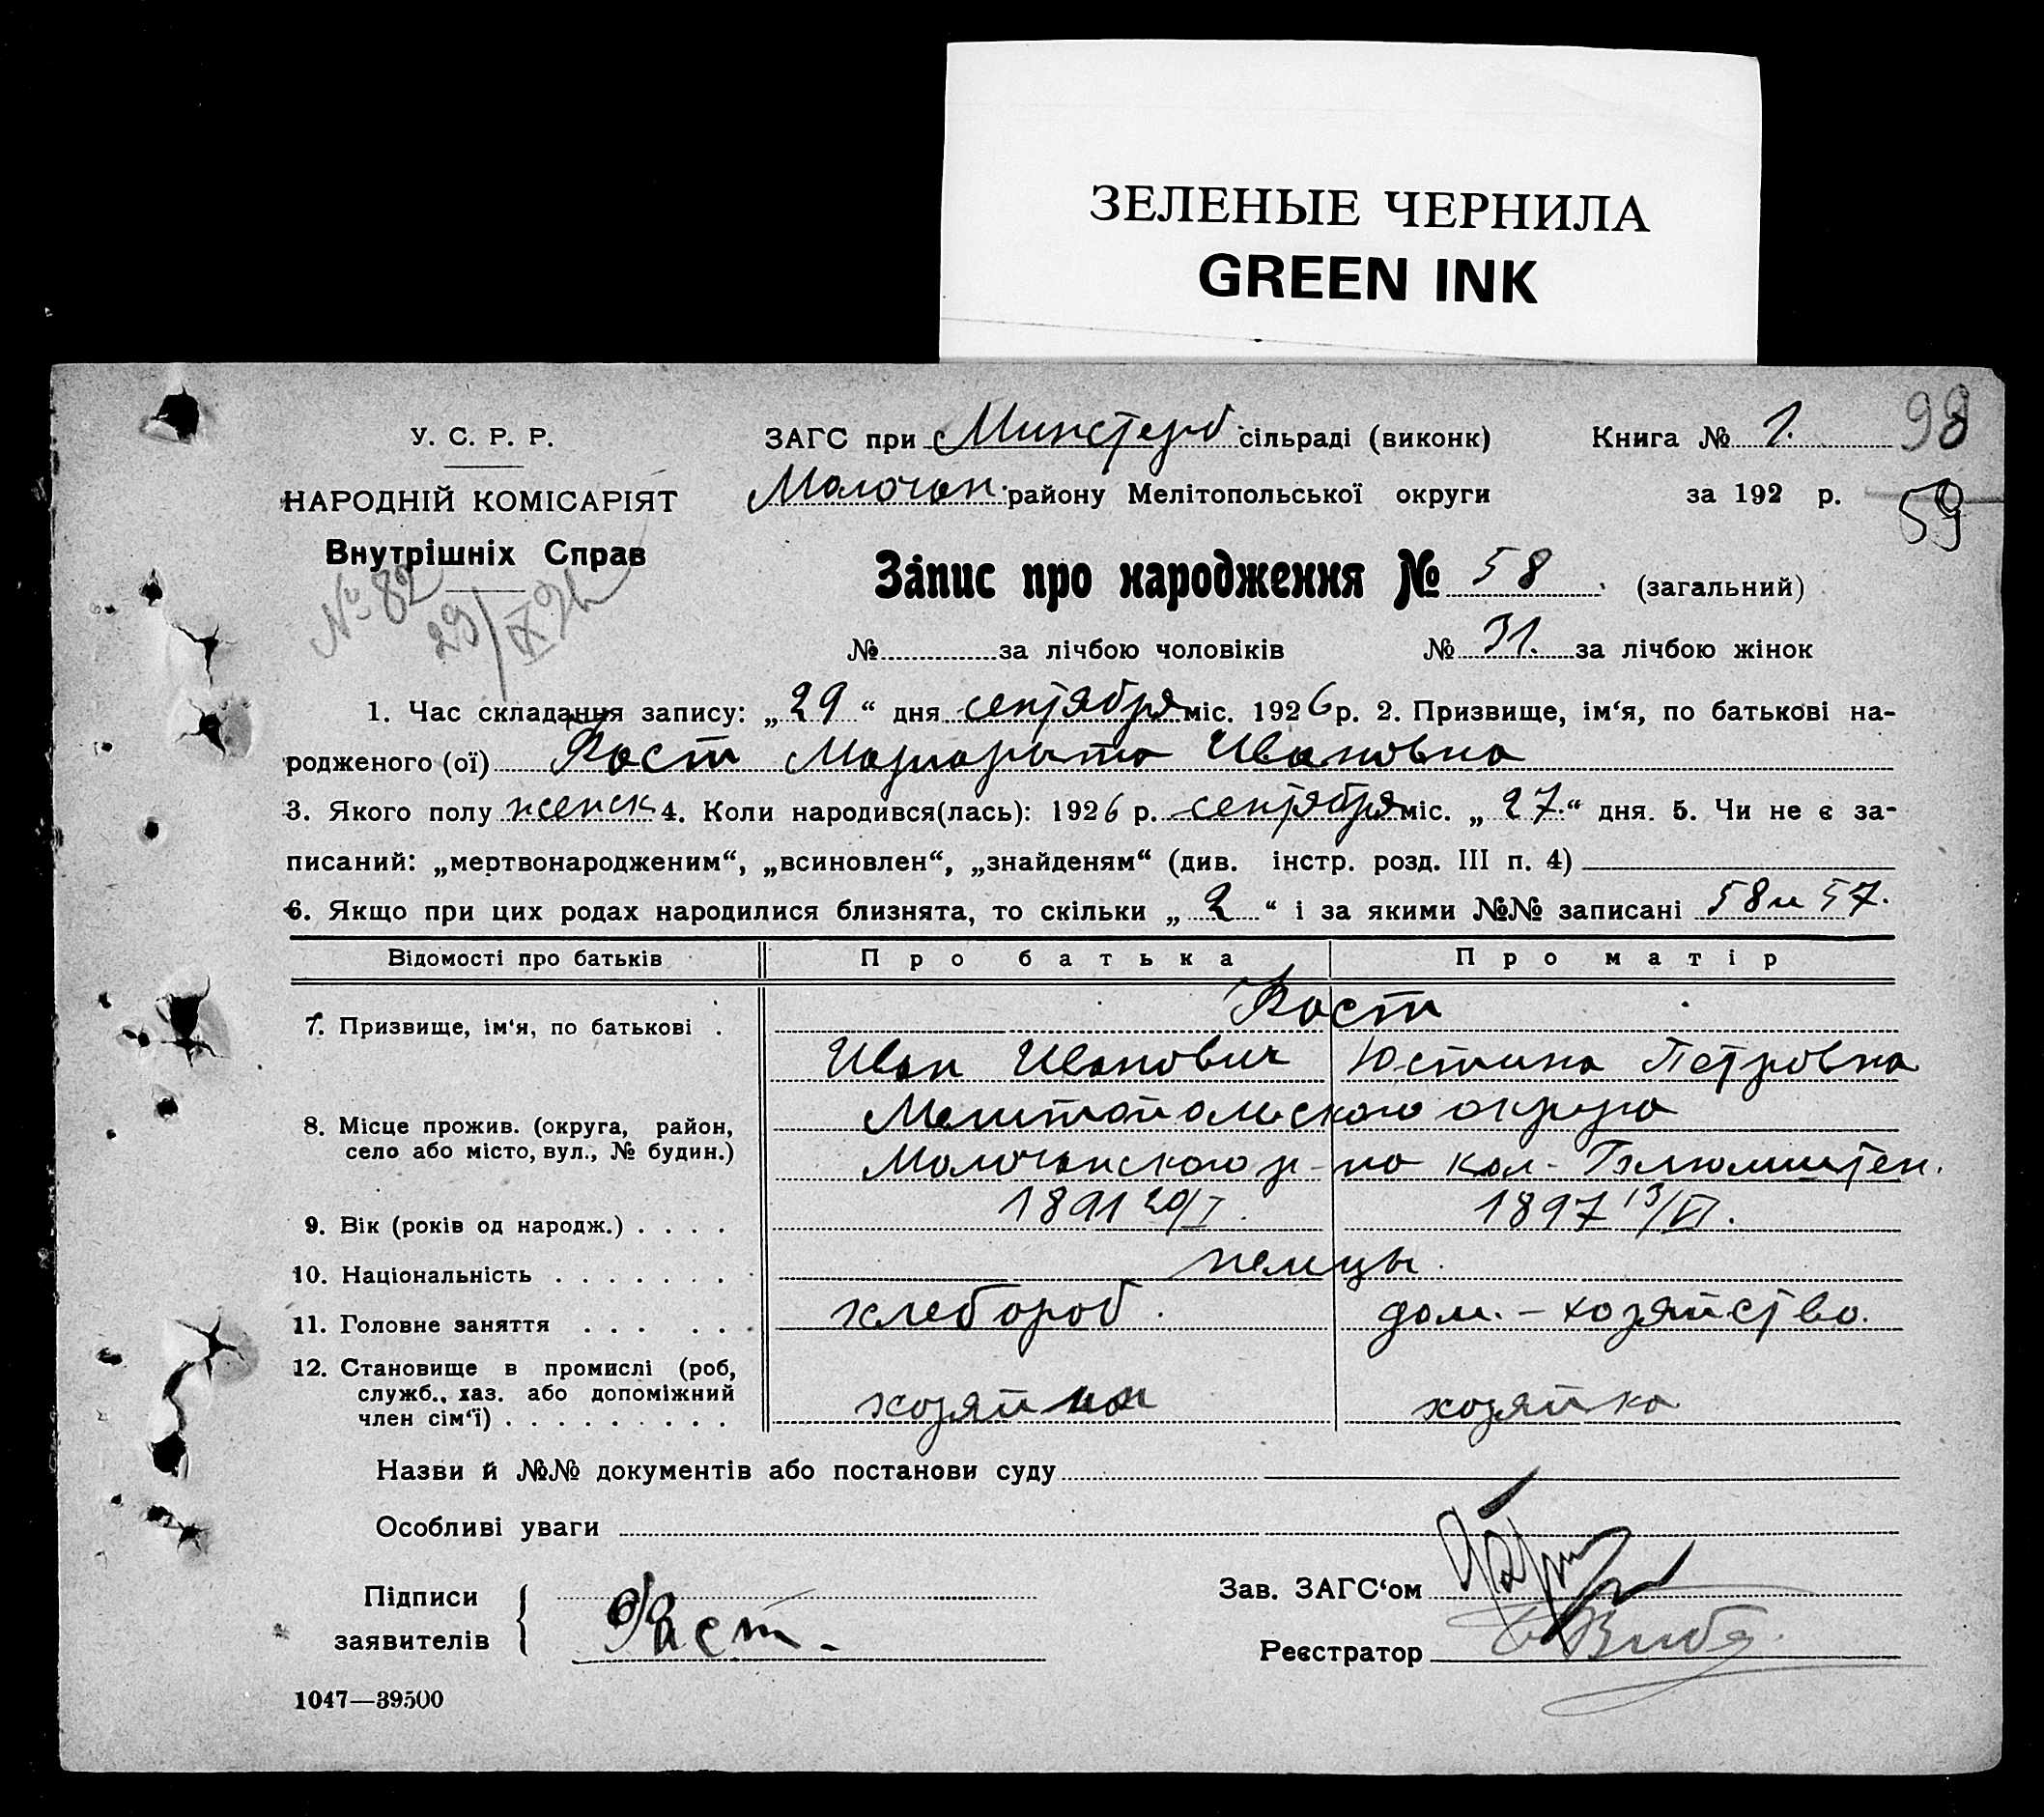 ЗЕЛЕНЫЕ ЧЕРНИЛА
GREEN INK
У. С. Р. Р.
НАРОДНІЙ КОМІСАРІЯТ
Внутрішніх Справ
№ 82
29/IX 26
ЗАГС при Минстерб. сільраді (виконк)
Молочан. району Мелітопольської округи
Книга № 1.
98
за 192 р.
59
Запис про народження № 58. (загальний)
№ за лічбою чоловіків № 31. за лічбою жінок
1. Час складання запису: „29“ дня сентября міс. 1926 р. 2. Призвище, ім‘я, по батькові на-
родженого (ої) Рост Маргарыта Ивановна
3. Якого полу женск 4. Коли народився(лась): 1926 р. сентября міс. „27.“ дня. 5. Чи не є за-
писаний: „мертвонародженим“, „всиновлен“, „знайденям“ (див. інстр. розд. III п. 4)
6. Якщо при цих родах народилися близнята, то скільки „2“ і за якими №№ записані 58 и 57.
Відомості про батьків Про батька Про матір
7. Призвище, ім‘я, по батькові . Рост
Иван Иванович Юстина Петровна
8. Місце прожив. (округа, район, село або місто, вул., № будин.) Мелитопольского округа
Молочанского р-на кол.
9. Вік (років од народж.) . . . . 1891 20/I. 1897 13/VI.
10. Національність . . . . . . . немцы.
11. Головне заняття . . . . . хлебороб. дом. - хозяйство.
12. Становище в промислі (роб,
служб., хаз. або допоміжний
член сім‘ї) . . . . . . . . . хозяин хозяйка
Назви й №№ документів або постанови суду
Особливі уваги
Підписи
заявителів Рост.
Зав. ЗАГС‘ом
Реєстратор
1047—39500